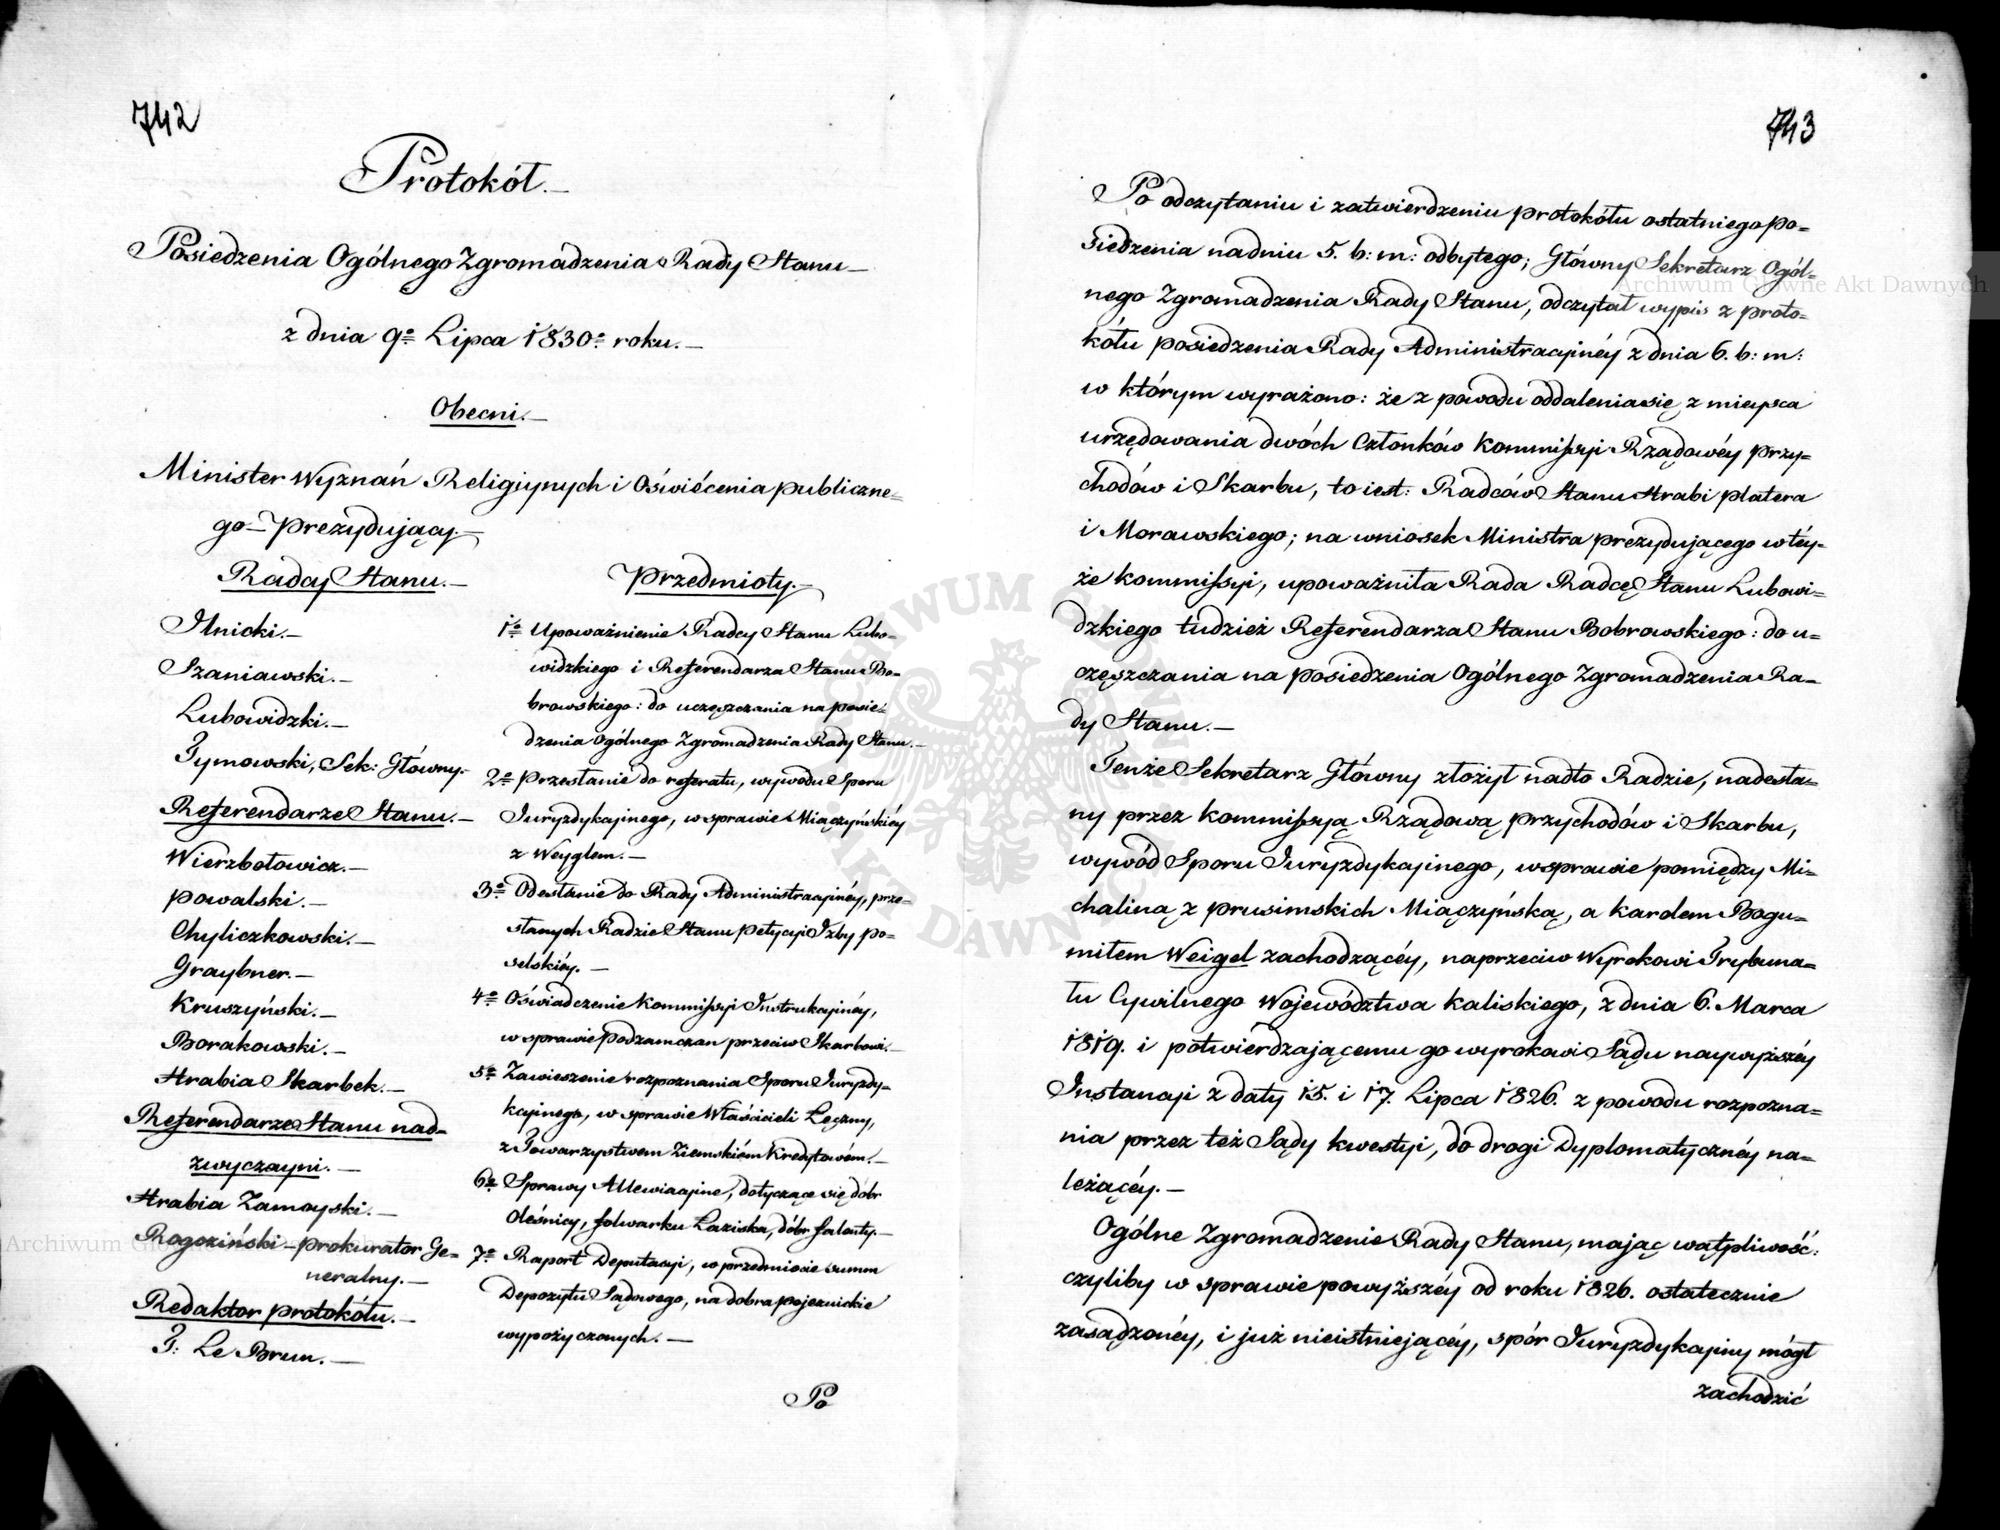 742
Protokół.—
Posiedzenia Ogólnego Zgromadzenia Rady Stanu—
z dnia 9º Lipca 1830º roku.—
Obecni.—
Minister Wyznań Religiynych i Oświécenia publiczne=
go— Prezydujący.—
Radcy Stanu.—
Ilnicki.—
Szaniawski.—
Lubowidzki.—
Tymowski, Sek: Główny.
Referendarze Stanu.—
Wierzbołowicz.—
Powalski.—
Chyliczkowski.—
Graybner.—
Kruszyński.—
Borakowski.—
Hrabia Skarbek.—
Referendarze Stanu nad=
zwyczayni.—
Hrabia Zamoyski.—
Rogoziński—prokurator Ge=
neralny.—
Redaktor protokółu.—
T: Le Brun.—
Przedmioty.—
1º Upoważnienie Radcy Stanu Lubo=
widzkiego i Referendarza Stanu Bo=
browskiego: do uczęszczania na posie=
dzenia Ogólnego Zgromadzenia Rady Stanu.—
2º Przesłanie do referatu, wywodu Sporu
Juryzdykcyinego, w sprawie Miączyńskiéy
z Weyglem.—
3º Odesłanie do Rady Administracyinéy, prze=
słanych Radzie Stanu petycyi Izby po=
selskiéy.—
4º Oświadczenie Kommissyi Instrukcyinéy,
w sprawie Podzamczan przeciw Skarbowi.—
5º Zawieszenie rozpoznania Sporu Juryzdy=
kcyinego, w sprawie Właścicieli Łęczny,
z Towarzystwem Ziemskiém Kredytowém.—
6º Sprawy Allewiacyine, dotyczące się dóbr
Oleśnicy, folwarku Łaziska, dóbr Falenty.—
7º Raport Deputacyi, w przedmiocie summ
Depozytu Sądowego, na dobra pojezuickie
wypożyczonych.—
Po
743
Po odczytaniu i zatwierdzeniu protokółu ostatniego po=
siedzenia na dniu 5. b: m: odbytego; Główny Sekretarz Ogól=
nego Zgromadzenia Rady Stanu, odczytał wypis z proto=
kółu posiedzenia Rady Administracyinéy z dnia 6. b: m:
w którym wyrażono: że z powodu oddalenia się z mieysca
urzędowania dwóch Członków Kommissyi Rządowéy Przy=
chodów i Skarbu, to iest: Radców Stanu Hrabi Platera
i Morawskiego; na wniosek Ministra prezydującego w téy=
że Kommissyi, upoważniła Rada Radcę Stanu Lubowi=
dzkiego tudzież Referendarza Stanu Bobrowskiego: do u=
częszczania na posiedzenia Ogólnego Zgromadzenia Ra=
dy Stanu.—
Tenże Sekretarz Główny złożył nadto Radzie, nadesła=
ny przez Kommissyą Rządową Przychodów i Skarbu,
wywód Sporu Juryzdykcyinego, w sprawie pomiędzy Mi=
chaliną z Prusimskich Miączyńską, a Karolem Bogu=
miłem Weigel zachodzącéy, naprzeciw Wyrokowi Trybuna=
łu Cywilnego Województwa Kaliskiego, z dnia 6. Marca
1819. i potwierdzającemu go wyrokowi Sądu naywyższéy
Instancyi z daty 15. i 17. Lipca 1826. z powodu rozpozna=
nia przez też Sądy kwestyi, do drogi Dyplomatycznéy na=
leżącéy.—
Ogólne Zgromadzenie Rady Stanu, mając wątpliwość:
czyliby w sprawie powyższéy od roku 1826. ostatecznie
zasądzonéy, i już nieistniejącéy, spór Juryzdykcyiny mógł
zachodzić
Archiwum Główne Akt Dawnych
ARCHIWUM GŁÓWNE AKT DAWNYCH
Archiwum Główne Akt Dawnych